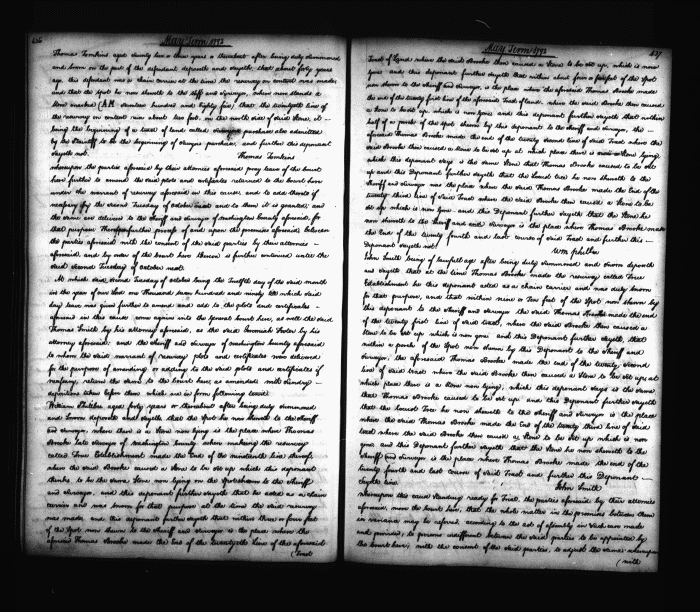 636 May Term 1793
Thomas Tomkins aged seventy two years & thereabout after being duly summoned
and sworn on the part of the defendant deposeth and sayeth, that about forty years
ago this defendant was a chain carrier at the time the resurvey in contest was made
and that the spot he now sheweth to the sheriff and surveyor, where now stands a
stone marked (A M seventeen hundred and Eighty five) that the twentieth line of
the resurvey in contest runs about two feet, on the north side of said stone, it
being the beginning of a tract of land called purchase also admitted
by the plaintiff to be the beginning of purchase, and further this deponent
sayeth not. Thomas Tomkins
whereupon the parties aforesaid by their attornies aforesaid pray leave of the court
here further to amend the said plots and certificates returned to the court here
under the warrant of resurvey aforesaid in this cause, and to add thereto if
necessary 'till the second Tuesday of October next and to them it is granted; and
the same are delivered to the sheriff and surveyor of Washington county aforesaid, for
that purpose. Thereupon further process of and upon the premises aforesaid between
the parties aforesaid with the consent of the said parties by their attornies
aforesaid, and by order of the court here thereon is further continued until the
said second Tuesday of October next.
At which said second Tuesday of October being the Twelfth day of the said month
in the year of our Lord one Thousand seven hundred and ninety till which said
day leave was given further to amend and add to the plots and certificates
aforesaid in this cause came again into the General court here, as well the said
Thomas Smith by his attorney aforesaid, as the said Jeremiah by his
attorney aforesaid; and the sheriff and surveyor of Washington county aforesaid
to whom the said warrant of resurvey plots and certificates were delivered
for the purpose of amending or adding to the said plots and certificates if
necessary, return the same to the court here as amended with sundry
depositions taken before them which are in form following to wit.
William aged forty years or thereabout after being duly summoned
and sworn deposeth and sayeth that the spot he now sheweth to the sheriff
and surveyor, where there is a stone now lying is the place where Thomas
Brooke late surveyor of Washington county when making the resurvey
called Force Establishment made the End of the nineteenth line thereof,
where the said Brooke caused a stone to be set up which this deponent
thinks to be the same stone now lying on the spot shewn to the sheriff
and surveyor, and this deponent further sayeth that he acted as a chain
carrier and was sworn for that purpose at the time the said resurvey
was made and this deponent further sayeth that within three or four feet
of the spot now shewn to the sheriff and surveyor is the place where the
aforesaid Thomas Brooke made the End of the twentieth Line of the aforesaid
(Tract
May Term 1793 637
Tract of Land where the said Brooke then caused a stone to be set up, which is now
gone and this deponent further sayeth that within about five of the spot
now shewn to the sheriff and surveyor, is the place where the aforesaid Thomas Brooke made
the end of the twenty first line of the aforesaid Tract of land, where the said Brooke then caused
a stone to be set up, which is now gone and this deponent further sayeth that within
half of a perch of the spot shewn by this deponent to the sheriff and surveyor, the
aforesaid Thomas Brooke made the end of the twenty second line of said Tract where the
said Brooke then caused a stone to be set up at which place there is a stone lying
which this deponent says is the same stone that Thomas Brooke caused to be set
up and this Deponent further sayeth that the Locust tree he now sheweth to the
sheriff and surveyor was the place where the said Thomas Brooke made the End of the
twenty third line of said Tract where the said Brooke then caused a stone to be
set up which is now gone and this Deponent further sayeth that the stone he
now sheweth to the sheriff and surveyor is the place where Thomas Brooke made
the End of the twenty fourth and last course of said Tract and further this
Deponent sayeth not.
Wm
John Smith being of lawful age after being duly summoned and sworn deposeth
and sayeth that at the time Thomas Brooke made the resurvey called Force
Establishment he this deponent acted as a chain carrier and was duly sworn
for that purpose, and that within nine or ten feet of the spot now shewn by
this deponent to the sheriff and surveyor the said Thomas Brooke made the end
of the twenty first line of said tract, where the said Brooke then caused a
stone to be set up which is now gone and this Deponent further sayeth, that
within a perch of the spot now shewn by this Deponent to the sheriff and
surveyor, the aforesaid Thomas Brooke made the end of the twenty second
line of said tract where the said Brooke then caused a stone to be set up at
which place there is a stone now lying, which this deponent says is the stone
that Thomas Brooke caused to be set up, and this Deponent further sayeth
that the Locust Tree he now sheweth to the sheriff and surveyor is the place
where the said Thomas Brooke made the End of the twenty third line of said
tract where the said Brooke then caused a stone to be set up which is now
gone and this Deponent further sayeth that the stone he now sheweth to the
sheriff and surveyor is the place where Thomas Brooke made the end of the
twenty fourth and last course of said Tract and further this Deponent
sayeth not.
John Smith
whereupon the cause standing ready for trial, the parties aforesaid by their attornies
aforesaid, move the court here, that the whole matter in the premises between them
in variance may be referred according to the act of assembly in such case made
and provided, to persons indifferent between the said parties to be appointed by
the court here, with the consent of the said parties, to adjust the same; whereupon
(with